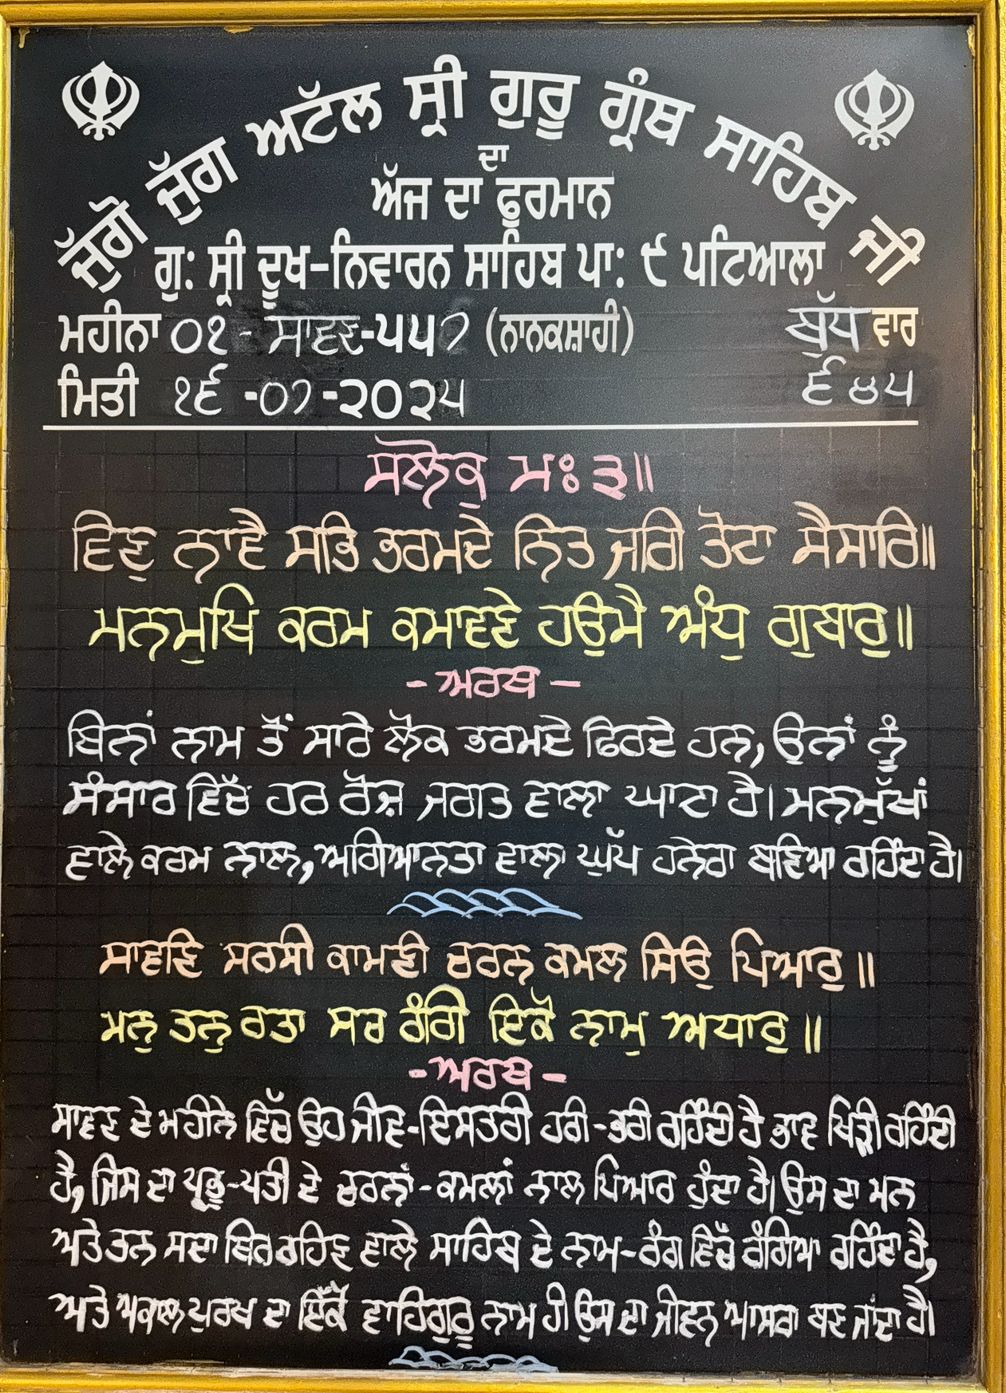 ਜੁੱਗੋ ਜੁੱਗ ਅਟੱਲ ਸ੍ਰੀ ਗੁਰੂ ਗ੍ਰੰਥ ਸਾਹਿਬ ਜੀ
ਦਾ
ਅੱਜ ਦਾ ਫੁਰਮਾਨ
ਗੁ: ਸ੍ਰੀ ਦੂਖ-ਨਿਵਾਰਨ ਸਾਹਿਬ ਪਾ: ੯ ਪਟਿਆਲਾ
ਮਹੀਨਾ ੦੧ - ਸਾਵਣ-੫੫੭ (ਨਾਨਕਸ਼ਾਹੀ) ਬੁੱਧ ਵਾਰ
ਮਿਤੀ ੧੬ -੦੭ -੨੦੨੫ ੬੪੫
ਸਲੋਕੁ ਮਃ ੩॥
ਵਿਣੁ ਨਾਵੈ ਸਭਿ ਭਰਮਦੇ ਨਿਤ ਜਗਿ ਤੋਟਾ ਸੈਸਾਰਿ॥
ਮਨਮੁਖਿ ਕਰਮ ਕਮਾਵਣੇ ਹਉਮੈ ਅੰਧੁ ਗੁਬਾਰੁ॥
- ਅਰਥ -
ਬਿਨਾਂ ਨਾਮ ਤੋਂ ਸਾਰੇ ਲੋਕ ਭਰਮਦੇ ਫਿਰਦੇ ਹਨ, ਉਨਾਂ ਨੂੰ
ਸੰਸਾਰ ਵਿੱਚ ਹਰ ਰੋਜ਼ ਜਗਤ ਵਾਲਾ ਘਾਟਾ ਹੈ। ਮਨਮੁੱਖਾਂ
ਵਾਲੇ ਕਰਮ ਨਾਲ, ਅਗਿਆਨਤਾ ਵਾਲਾ ਘੁੱਪ ਹਨੇਰਾ ਬਣਿਆ ਰਹਿੰਦਾ ਹੈ।
ਸਾਵਣਿ ਸਰਸੀ ਕਾਮਣੀ ਚਰਨ ਕਮਲ ਸਿਉ ਪਿਆਰੁ ॥
ਮਨੁ ਤਨੁ ਰਤਾ ਸਚ ਰੰਗਿ ਇਕੋ ਨਾਮੁ ਅਧਾਰੁ ॥
- ਅਰਥ -
ਸਾਵਣ ਦੇ ਮਹੀਨੇ ਵਿੱਚ ਉਹ ਜੀਵ-ਇਸਤਰੀ ਹਰੀ-ਭਰੀ ਰਹਿੰਦੀ ਹੈ ਭਾਵ ਖਿੜੀ ਰਹਿੰਦੀ
ਹੈ, ਜਿਸ ਦਾ ਪ੍ਰਭੂ-ਪਤੀ ਦੇ ਚਰਨਾਂ-ਕਮਲਾਂ ਨਾਲ ਪਿਆਰ ਹੁੰਦਾ ਹੈ। ਉਸ ਦਾ ਮਨ
ਅਤੇ ਤਨ ਸਦਾ ਥਿਰ ਰਹਿਣ ਵਾਲੇ ਸਾਹਿਬ ਦੇ ਨਾਮ-ਰੰਗ ਵਿੱਚ ਰੰਗਿਆ ਰਹਿੰਦਾ ਹੈ,
ਅਤੇ ਅਕਾਲ ਪੁਰਖ ਦਾ ਇੱਕੋ ਵਾਹਿਗੁਰੂ ਨਾਮ ਹੀ ਉਸ ਦਾ ਜੀਵਨ ਆਸਰਾ ਬਣ ਜਾਂਦਾ ਹੈ।